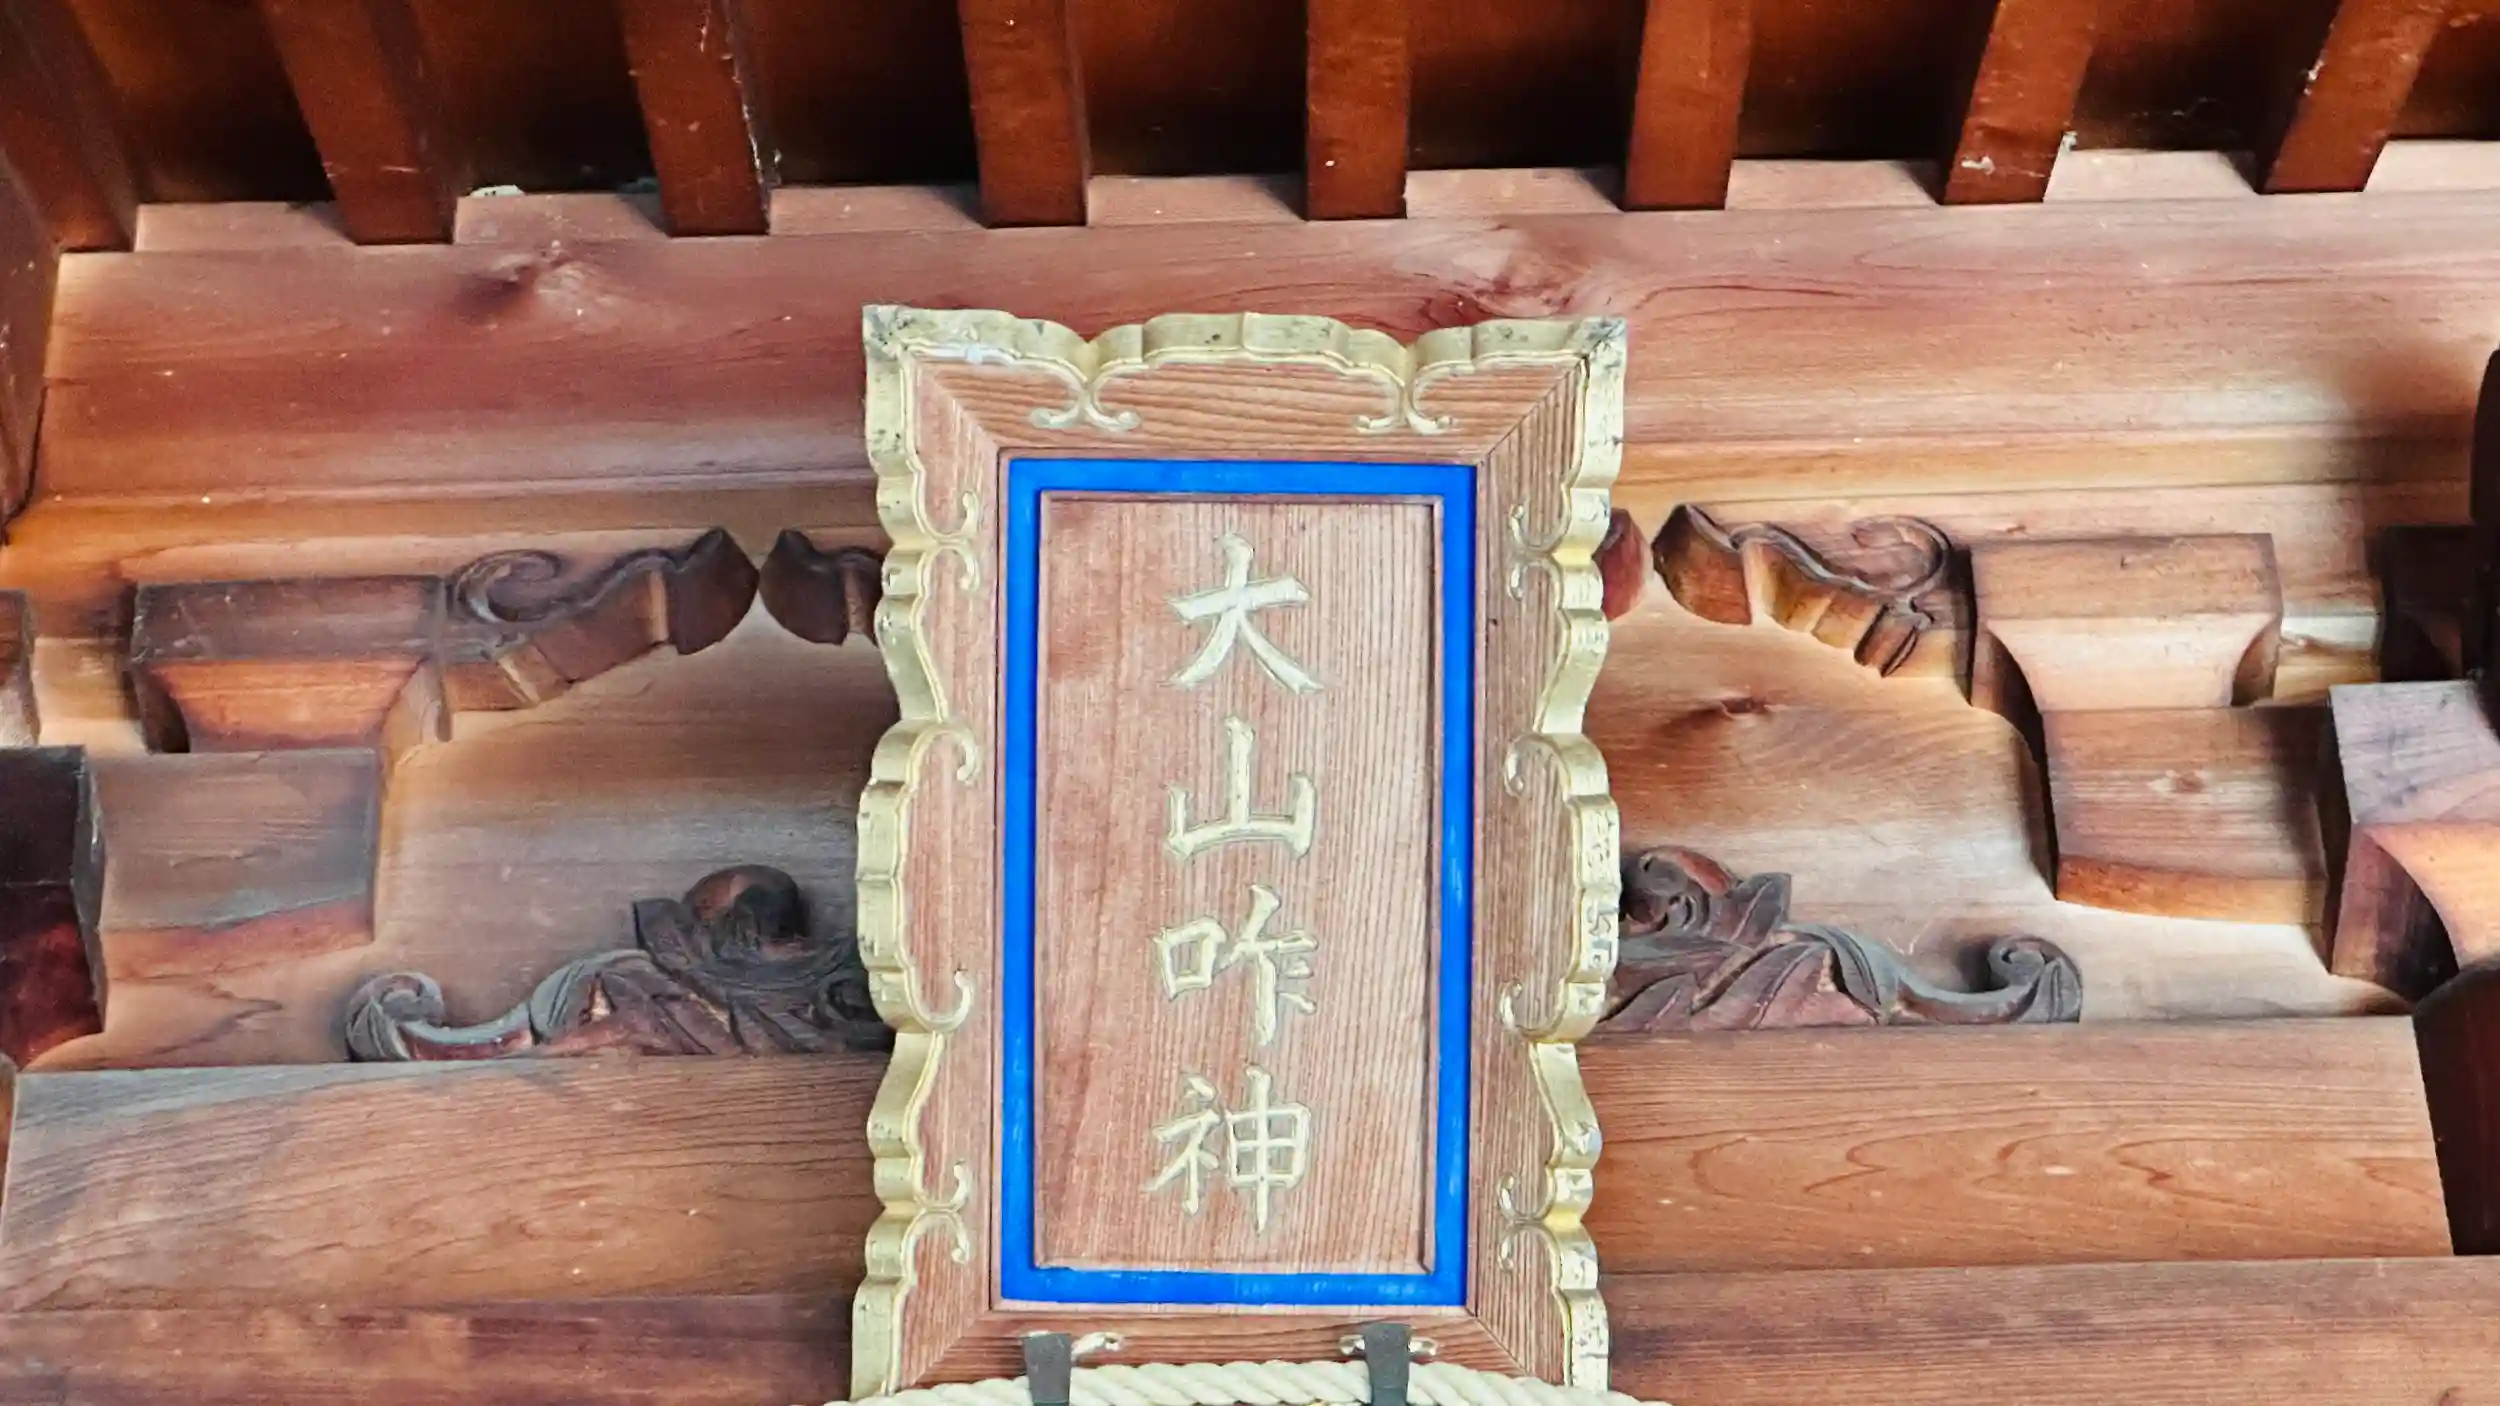 大山咋神